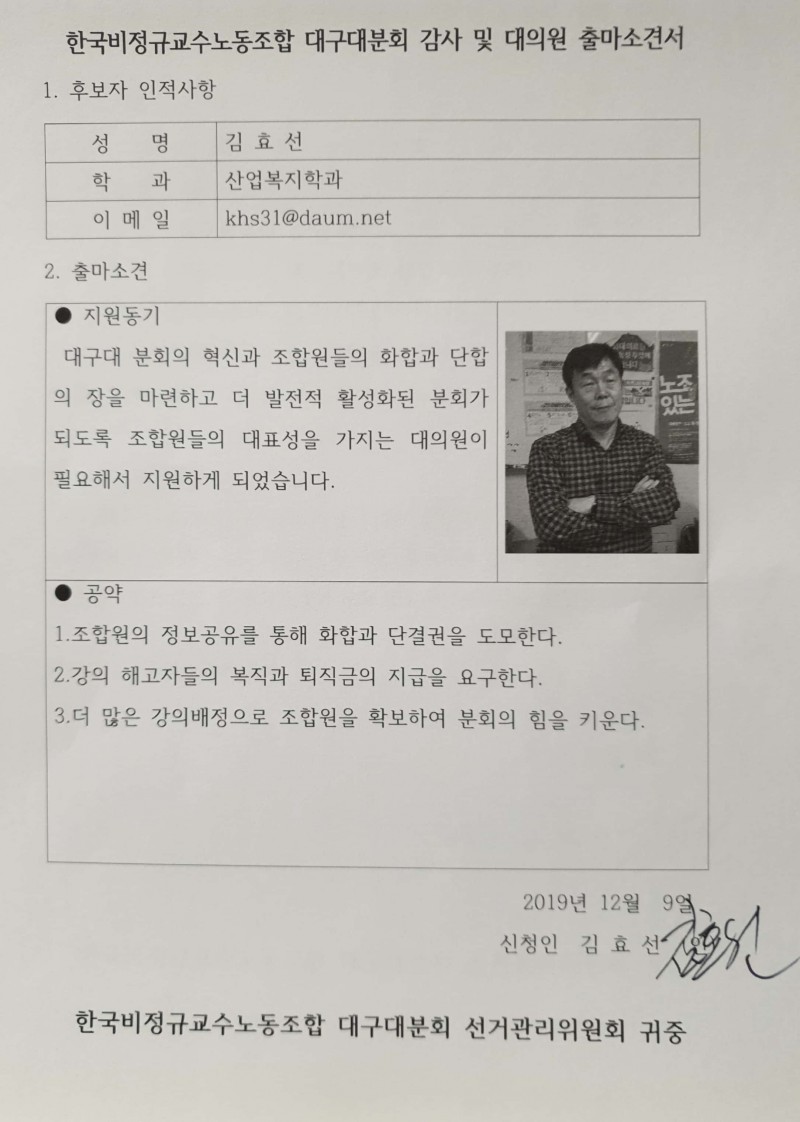 한국비정규교수노동조합 대구대분회 감사 및 대의원 출마소견서
1. 후보자 인적사항
성 명 김 효 선
학 과 산업복지학과
이 메 일 khs31@daum.net
2. 출마소견
● 지원동기
대구대 분회의 혁신과 조합원들의 화합과 단합
의 장을 마련하고 더 발전적 활성화된 분회가
되도록 조합원들의 대표성을 가지는 대의원이
필요해서 지원하게 되었습니다.
노조
있는
● 공약
1.조합원의 정보공유를 통해 화합과 단결권을 도모한다.
2.강의 해고자들의 복직과 퇴직금의 지급을 요구한다.
3.더 많은 강의배정으로 조합원을 확보하여 분회의 힘을 키운다.
2019년 12월 9일
신청인 김 효 선
한국비정규교수노동조합 대구대분회 선거관리위원회 귀중